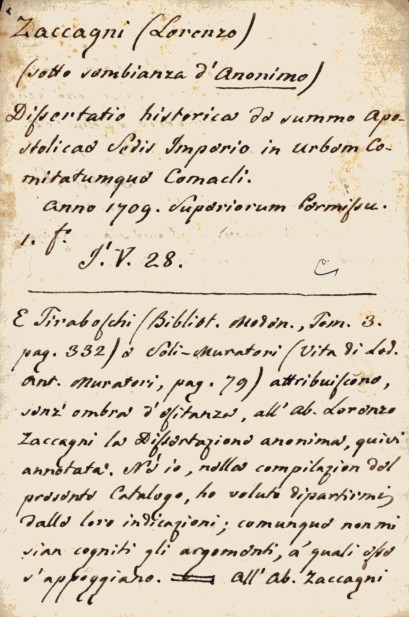 Zaccagni (Lorenzo)
(sotto sembianza d'Anonimo)
Dissertatio historica de summo Apo-
stolicae Sedis Imperio in Urbem Co-
mitatumque Comacli.
Anno 1709. Superiorum Permissu.
1. f.º
J. V. 28.
E Tiraboschi (Bibliot. Moden., Tom. 3.
pag. 332) e Soli-Muratori (Vita di Lod.
Ant. Muratori, pag. 79) attribuiscono,
senz' ombra d'esitanza, all' Ab. Lorenzo
Zaccagni la Dissertazione anonima, quivi
annotata. Nè io, nella compilazion del
presente Catalogo, ho voluto dipartirmi
dalle loro indicazioni; comunque non mi
sian cogniti gli argomenti, a' quali esse
s'appoggiano. = All' Ab. Zaccagni